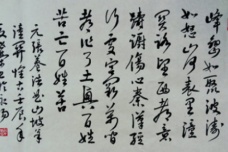 峰峦如聚波涛
如怒山河表里潼
关路望西都意踌
躇伤心秦汉经
行处宫阙万间
都做了土兴百姓
苦亡百姓苦
元张养浩山坡羊
潼关怀古